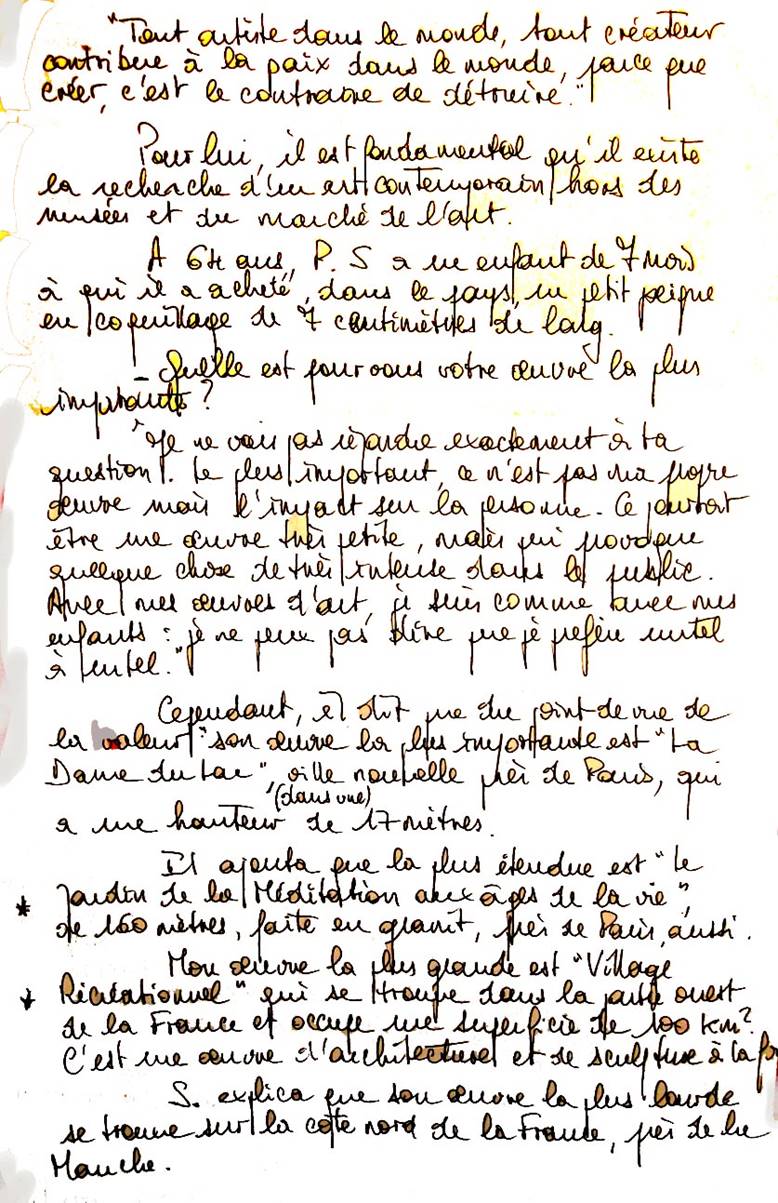 "Tout artiste dans le monde, tout créateur
contribue à la paix dans le monde, parce que
créer, c'est le contraire de détruire."
Pour lui, il est fondamental qu'il existe
la recherche d'un art contemporain hors des
musées et du marché de l'art.
A 64 ans, P. S a un enfant de 7 mois
à qui il a acheté, dans le pays, un petit peigne
en coquillage de 7 centimètres de long.
- Quelle est pour vous votre œuvre la plus
importante ?
"Je ne vais pas répondre exactement à ta
question. Le plus important, ce n'est pas ma propre
œuvre mais l'impact sur la personne. Ce pourrait
être une œuvre très petite, mais qui provoque
quelque chose de très intense dans le public.
Avec mes œuvres d'art, je suis comme avec mes
enfants : je ne peux pas dire que je préfère untel
à untel."
Cependant, il dit que du point de vue de
la valeur "son œuvre la plus importante est "La
Dame du Lac", ville nouvelle près de Paris, qui
(dans une)
a une hauteur de 17 mètres.
Il ajouta que la plus étendue est "Le
* Jardin de la Méditation aux âges de la vie",
de 160 mètres, faite en granit, près de Paris, aussi.
Mon œuvre la plus grande est "Village
* Récréationnel" qui se trouve dans la partie ouest
de la France et occupe une superficie de 100 km².
C'est une œuvre d'architecture et de sculpture à la
S. explica que son œuvre la plus lourde
se trouve sur la côte nord de la France, près de la
Manche.